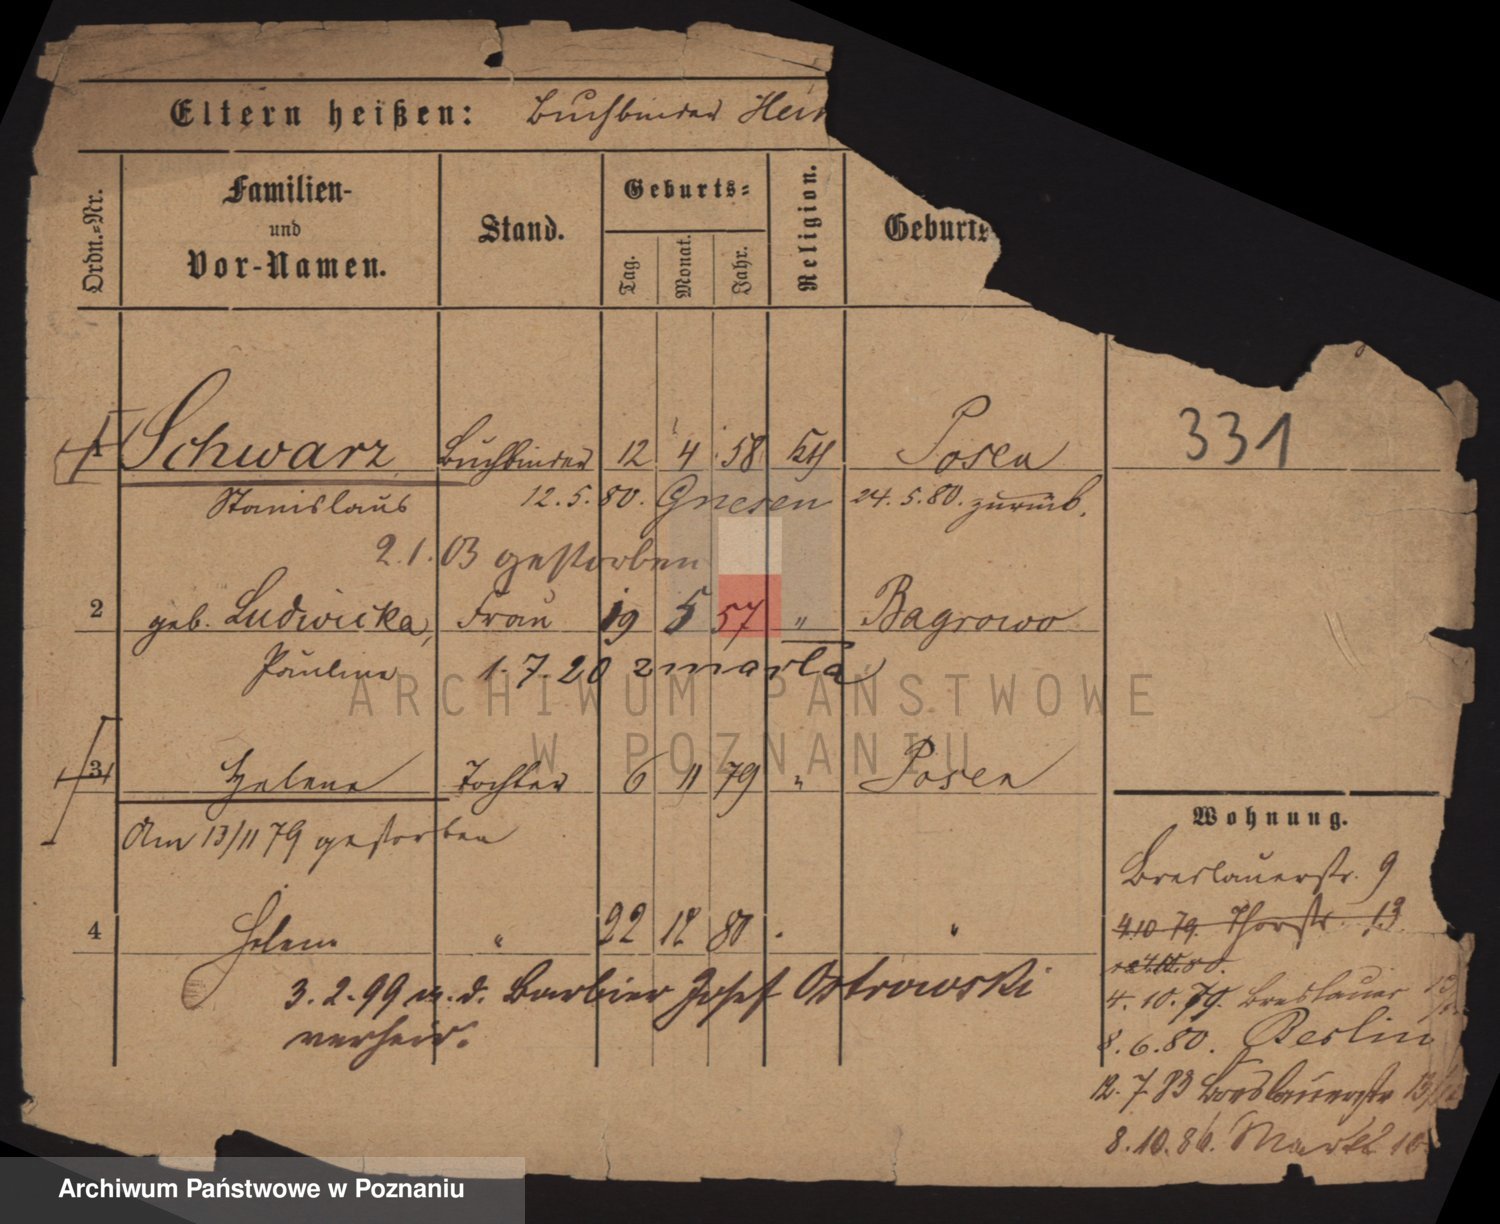 Eltern heißen: Buchbinder Hein
Ordn.=Nr.
Familien-
und
Vor-Namen.
Stand.
Geburts=
Tag.
Monat.
Jahr.
Religion.
Geburts
331
1 Schwarz Buchbinder 12 4 58 kth Posen
Stanislaus 12.5.80. Gnesen 24.5.80. zurück.
2.1.03 gestorben
2 geb. Ludwicka, Frau 19 5 57 " Bagrowo
Pauline 1.7.20 zmarła
ARCHIWUM PAŃSTWOWE
W POZNANIU
3 Helene Tochter 6 11 79 " Posen
Am 13/11 79 gestorben
4 Helene " 22 12 80 "
3.2.99 m. d. Barbier Josef Ostrowski
verheir.
Wohnung.
Breslauerstr. 9
4.10 79. Thorstr. 13
4.10.79. Breslauer
8.6.80. Berlin
12.7.83 Breslauerstr 13/
8.10.86. Markt
Archiwum Państwowe w Poznaniu